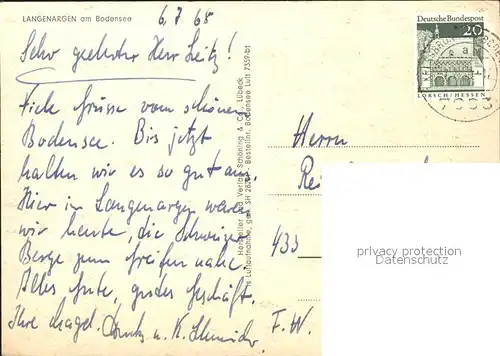 LANGENARGEN am Bodensee
6.7.68
Sehr geehrter Herr Leitz!
Viele Grüsse vom schönen
Bodensee. Bis jetzt
halten wir es so gut aus.
Hier in Langenargen waren
wir heute, die Schweizer
Berge zum greifen nahe.
Alles Gute, gutes Geschäft.
Ihre u. K. Schneider F. W.
Hersteller und Verlag Schöning & Co., Lübeck
Luftaufnahme, Bestellnr. Bodensee Luft 7359 bt
Deutsche Bundespost
20
LORSCH/HESSEN
a
Herrn
433
privacy protection
Datenschutz